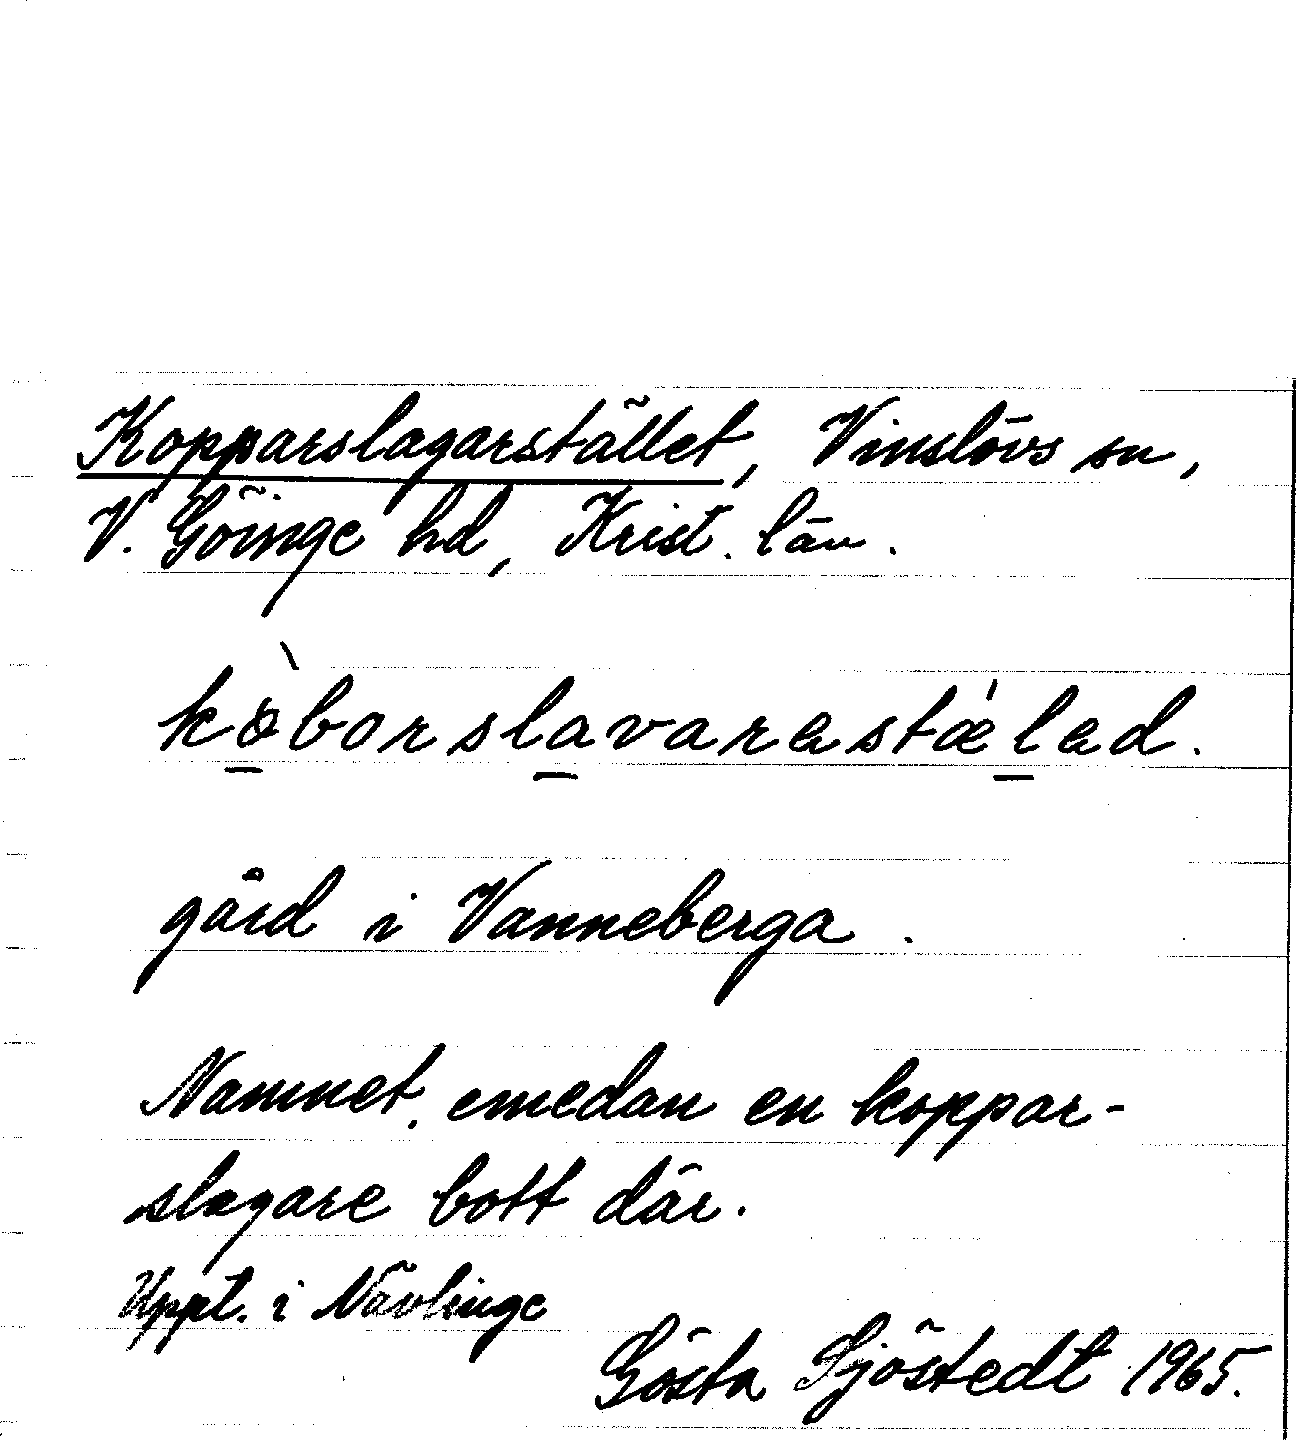 Kopparslagarstället, Vinslövs sn,
V. Göinge hd, Krist. län.
kòborslavarəstǽləd.
gård i Vanneberga.
Namnet, emedan en koppar-
slagare bott där.
Uppt. i Nävlinge
Gösta Sjöstedt 1965.